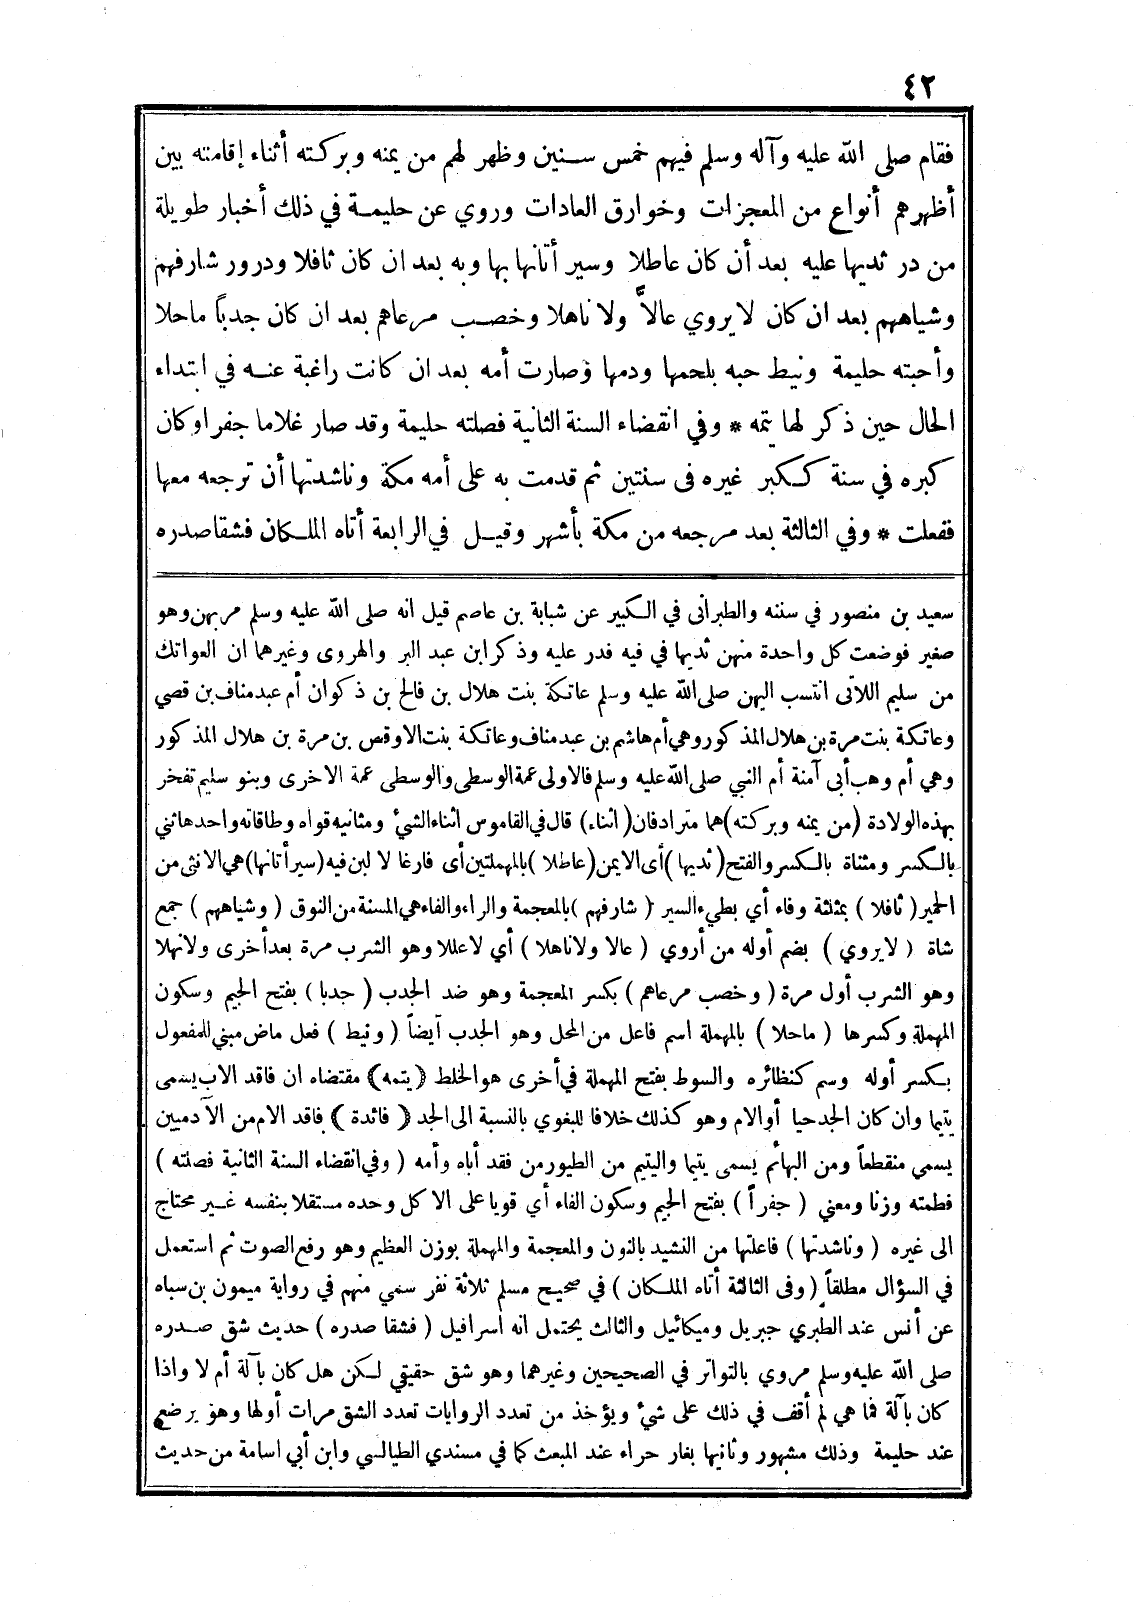 ٤٢
فقام صلى الله عليه وآله وسلم فيهم خمس سنين وظهر لهم من يمنه وبركته أثناء إقامته بين
أظهرهم أنواع من المعجزات وخوارق العادات وروي عن حليمة في ذلك أخبار طويلة
من در ثديها عليه بعد أن كان عاطلا وسير أتانها بها وبه بعد ان كان ثافلا ودرور شارفهم
وشياههم بعد ان كان لا يروي عالاًّ ولا ناهلا وخصب مرعاهم بعد ان كان جدباً ماحلا
وأحبته حليمة ونيط حبه بلحمها ودمها وصارت أمه بعد ان كانت راغبة عنه في ابتداء
الحال حين ذكر لها يتمه * وفي انقضاء السنة الثانية فصلته حليمة وقد صار غلاما جفرا وكان
كبره في سنة ككبر غيره فى سنتين ثم قدمت به على أمه مكة وناشدتها أن ترجعه معها
ففعلت * وفي الثالثة بعد مرجعه من مكة بأشهر وقيل في الرابعة أتاه الملكان فشقا صدره
سعيد بن منصور في سننه والطبرانى في الكبير عن شبابة بن عاصم قيل انه صلى الله عليه وسلم مر بهن وهو
صغير فوضعت كل واحدة منهن ثديها في فيه فدر عليه وذكر ابن عبد البر والهروى وغيرهما ان العواتك
من سليم اللاتى انتسب اليهن صلى الله عليه وسلم عاتكة بنت هلال بن فالح بن ذكوان أم عبد مناف بن قصي
وعاتكة بنت مرة بن هلال المذكور وهي أم هاشم بن عبد مناف وعاتكة بنت الاوقص بن مرة بن هلال المذكور
وهي أم وهب أبى آمنة أم النبي صلى الله عليه وسلم فالاولى عمة الوسطى والوسطى عمة الاخرى وبنو سليم تفخر
بهذه الولادة (من يمنه وبركته) هما مترادفان (أثناء) قال في القاموس أثناء الشيء ومثانيه قواه وطاقاته واحدها ثني
بالكسر ومثناة بالكسر والفتح (ثديها) أى الايمن (عاطلا) بالمهملتين أى فارغا لا لبن فيه (سير أتانها) هي الانثى من
الحمير (ثافلا) بمثلثة وفاء أي بطيء السير (شارفهم) بالمعجمة والراء والفاء هي المسنة من النوق (وشياههم) جمع
شاة (لا يروي) بضم أوله من أروي (عالا ولا ناهلا) أي لا عللا وهو الشرب مرة بعد أخرى ولا نهلا
وهو الشرب أول مرة (وخصب مرعاهم) بكسر المعجمة وهو ضد الجدب (جدبا) بفتح الجيم وسكون
المهملة وكسرها (ماحلا) بالمهملة اسم فاعل من المحل وهو الجدب أيضاً (ونيط) فعل ماض مبني للمفعول
بكسر أوله وسم كنظائره والسوط بفتح المهملة في أخرى هو الخلط (يتمه) مقتضاه ان فاقد الاب يسمى
يتيما وان كان الجد حيا أو الام وهو كذلك خلافا للبغوي بالنسبة الى الجد (فائدة) فاقد الام من الآدميين
يسمي منقطعاً ومن البهائم يسمى يتيما واليتيم من الطيور من فقد أباه وأمه (وفي انقضاء السنة الثانية فصلته)
فطمته وزنا ومعني (جفراً) بفتح الجيم وسكون الفاء أي قويا على الاكل وحده مستقلا بنفسه غير محتاج
الى غيره (وناشدتها) فاعلتها من النشيد بالنون والمعجمة والمهملة بوزن العظيم وهو رفع الصوت ثم استعمل
في السؤال مطلقاً (وفى الثالثة أتاه الملكان) في صحيح مسلم ثلاثة نفر سمي منهم في رواية ميمون بن سياه
عن أنس عند الطبري جبريل وميكائيل والثالث يحتمل انه اسرافيل (فشقا صدره) حديث شق صدره
صلى الله عليه وسلم مروي بالتواتر في الصحيحين وغيرهما وهو شق حقيقي لكن هل كان بآلة أم لا واذا
كان بآلة فما هي لم أقف في ذلك على شيء ويؤخذ من تعدد الروايات تعدد الشق مرات أولها وهو يرضع
عند حليمة وذلك مشهور وثانيها بغار حراء عند المبعث كما في مسندي الطيالسي وابن أبي اسامة من حديث